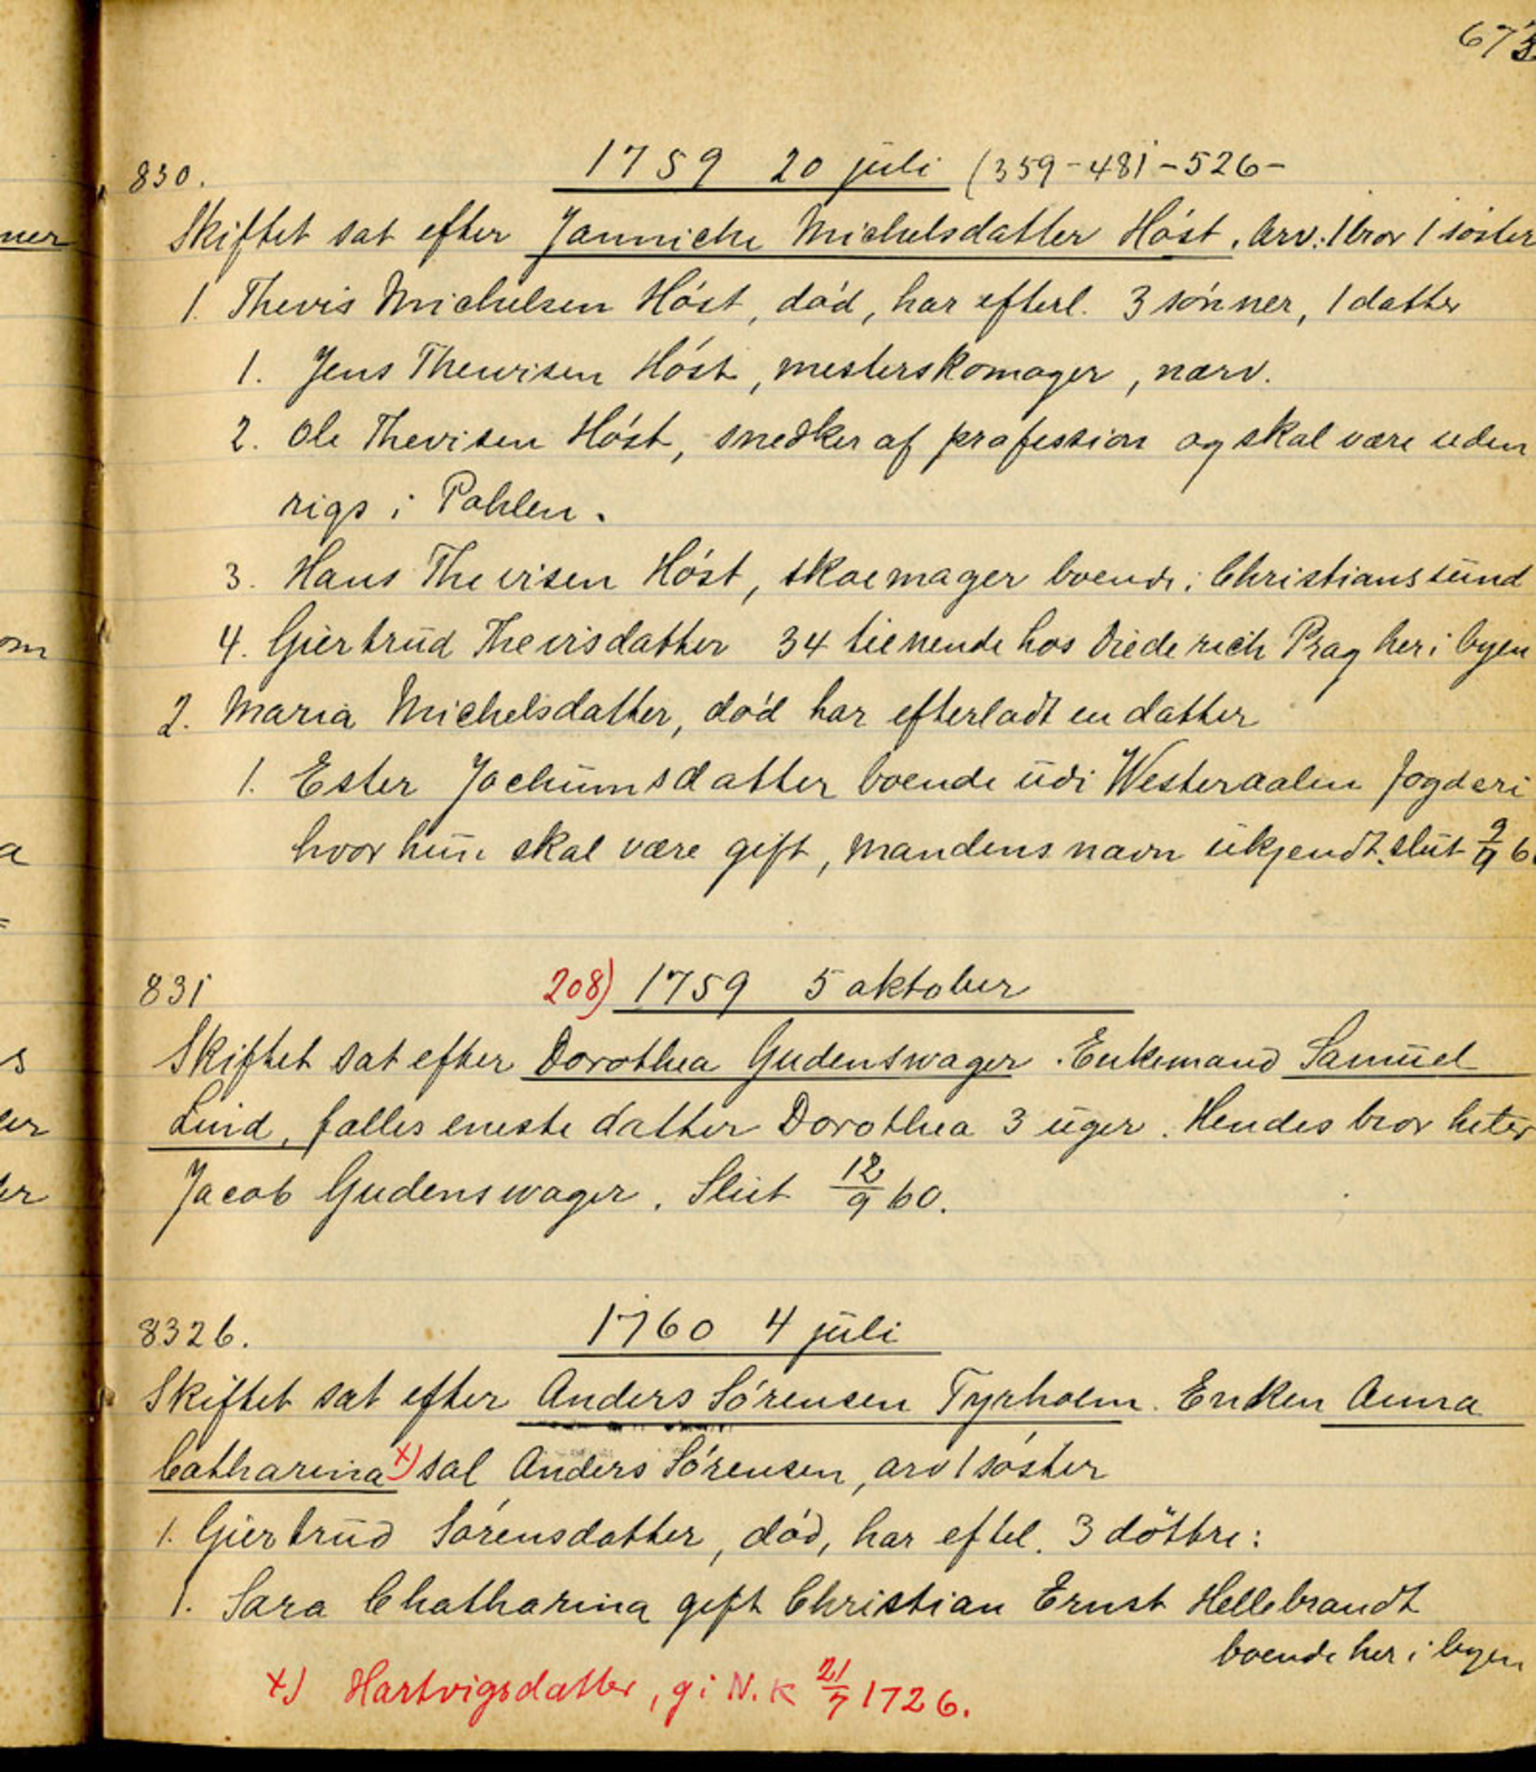 673
830. 1759 20 juli (359-481-526-
Skiftet sat efter Jannicke Michelsdatter Høst. Arv: 1 bror 1 søster
1. Thevis Michelsen Høst, død, har efterl. 3 sønner, 1 datter
1. Jens Thewisen Høst, mesterskomager, nærv.
2. Ole Thevisen Høst, snedker af profession og skal være uden
rigs i Pohlen.
3. Hans Thevisen Høst, skoemager boende i Christianssund
4. Giertrud Thevisdatter 34 tienende hos Diederich Prag her i byen
2. Maria Michelsdatter, død har efterladt en datter
1. Ester Jochumsdatter boende udi Westeraalen fogderi
hvor hun skal være gift, mandens navn ukjendt. slut 9/9 6
831 208) 1759 5 oktober
Skiftet sat efter Dorothea Gudenswager. Enkemand Samuel
Lind, fælles eneste datter Dorothea 3 uger. Hendes bror heter
Jacob Gudenswager. Slut 12/9 60.
832b. 1760 4 juli
Skiftet sat efter Anders Sørensen Tyrholm. Enken Anna
Catharina x) sal Anders Sørensen, arv 1 søster
1. Giertrud Sørensdatter, død, har eftel. 3 døttre:
1. Sara Chatharina gift Christian Ernst Hellebrandt
boende her i byen
x) Hartvigsdatter, g i N.K 21/7 1726.
ner
om
a
s
er
er